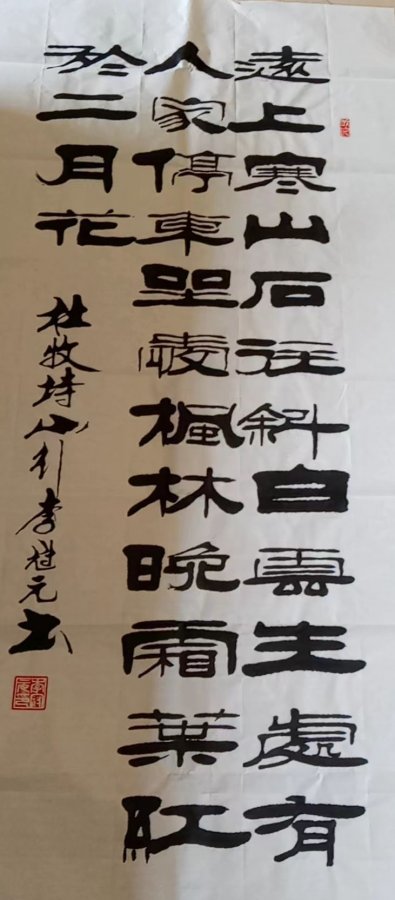 遠上寒山石径斜白雲生處有
人家停車坐愛楓林晚霜葉紅
於二月花
杜牧詩山行李桂元书